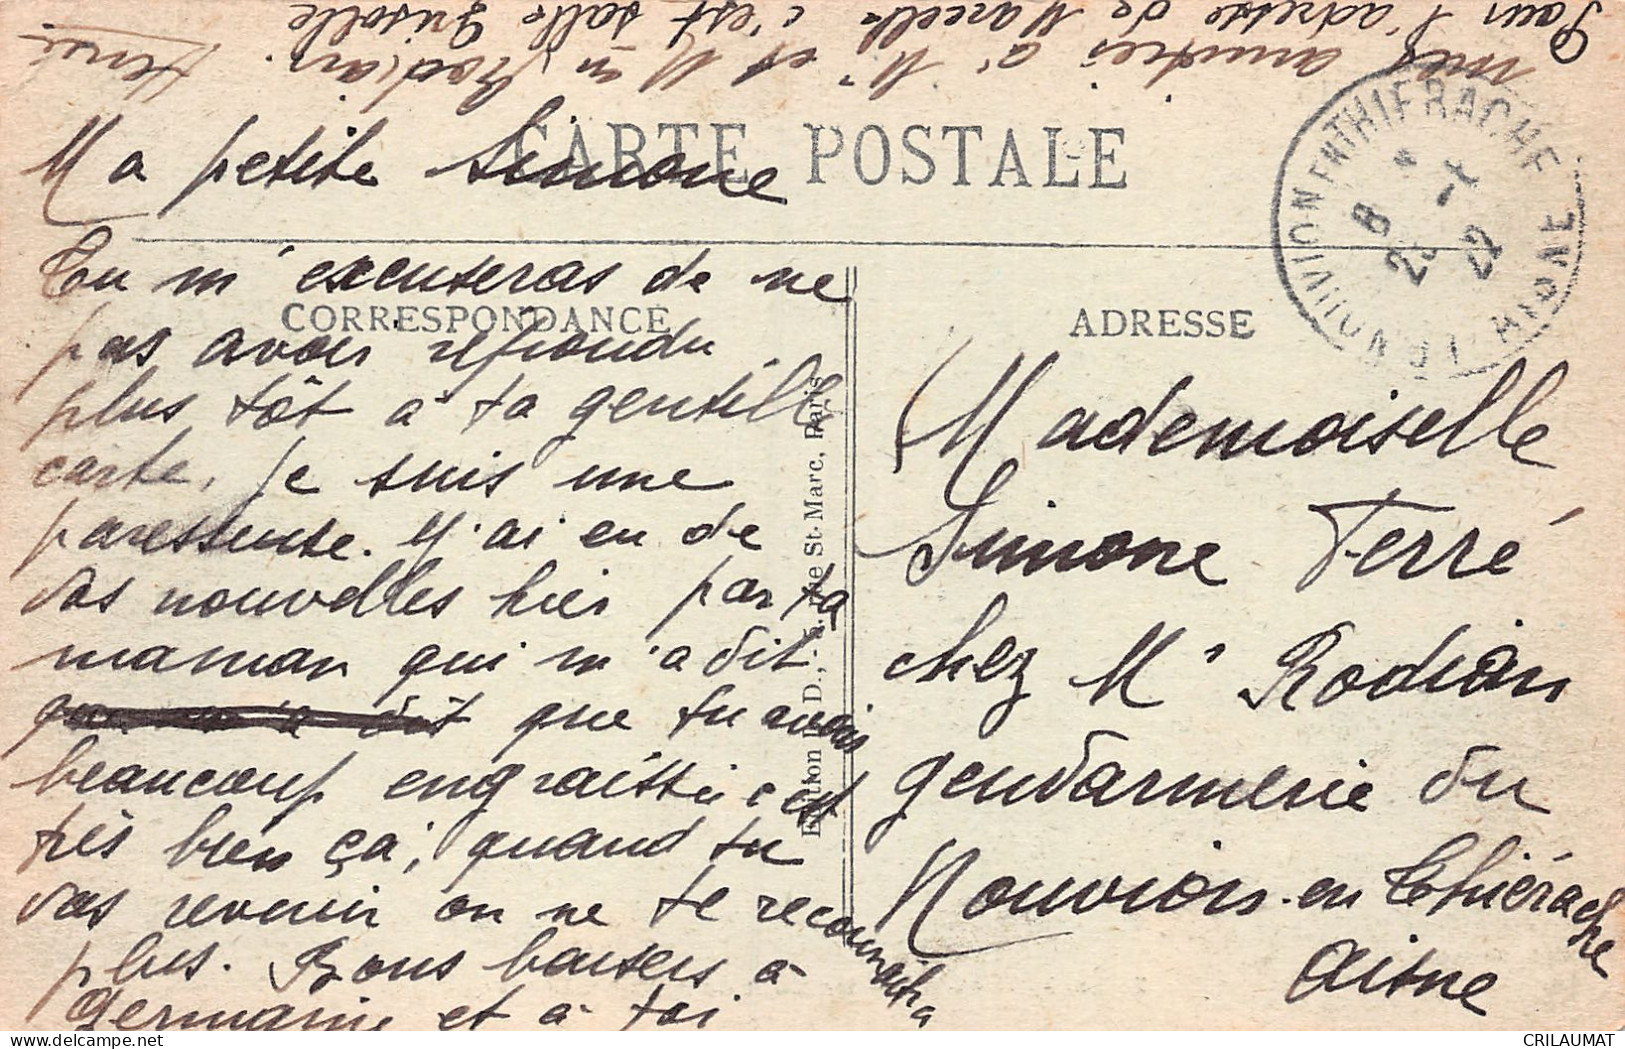 CARTE POSTALE
Ma petite Simone
Tu m'excuseras de ne
CORRESPONDANCE
pas avoir répondu
plus tôt à ta gentille
carte. Je suis une
paresseuse. J'ai eu de
tes nouvelles hier par ta
maman qui m'a dit
que m'a dit que tu avais
beaucoup engraissé c'est
très bien ça, quand tu
vas revenir on ne te reconnaitra
plus. Bons baisers à
Germaine et à toi
mes amitiés à Mr et Mme Rodian.
Pour l'adresse de Marcelle c'est salle Grisolle
Edition D., rue St-Marc, Paris
ADRESSE
Mademoiselle
Simone Ferré
chez Mr Rodian
gendarmerie du
Nouvion-en Thiérache
Aisne
NOUVION EN THIERACHE
AISNE
8
23 -7
22
CRILAUMAT